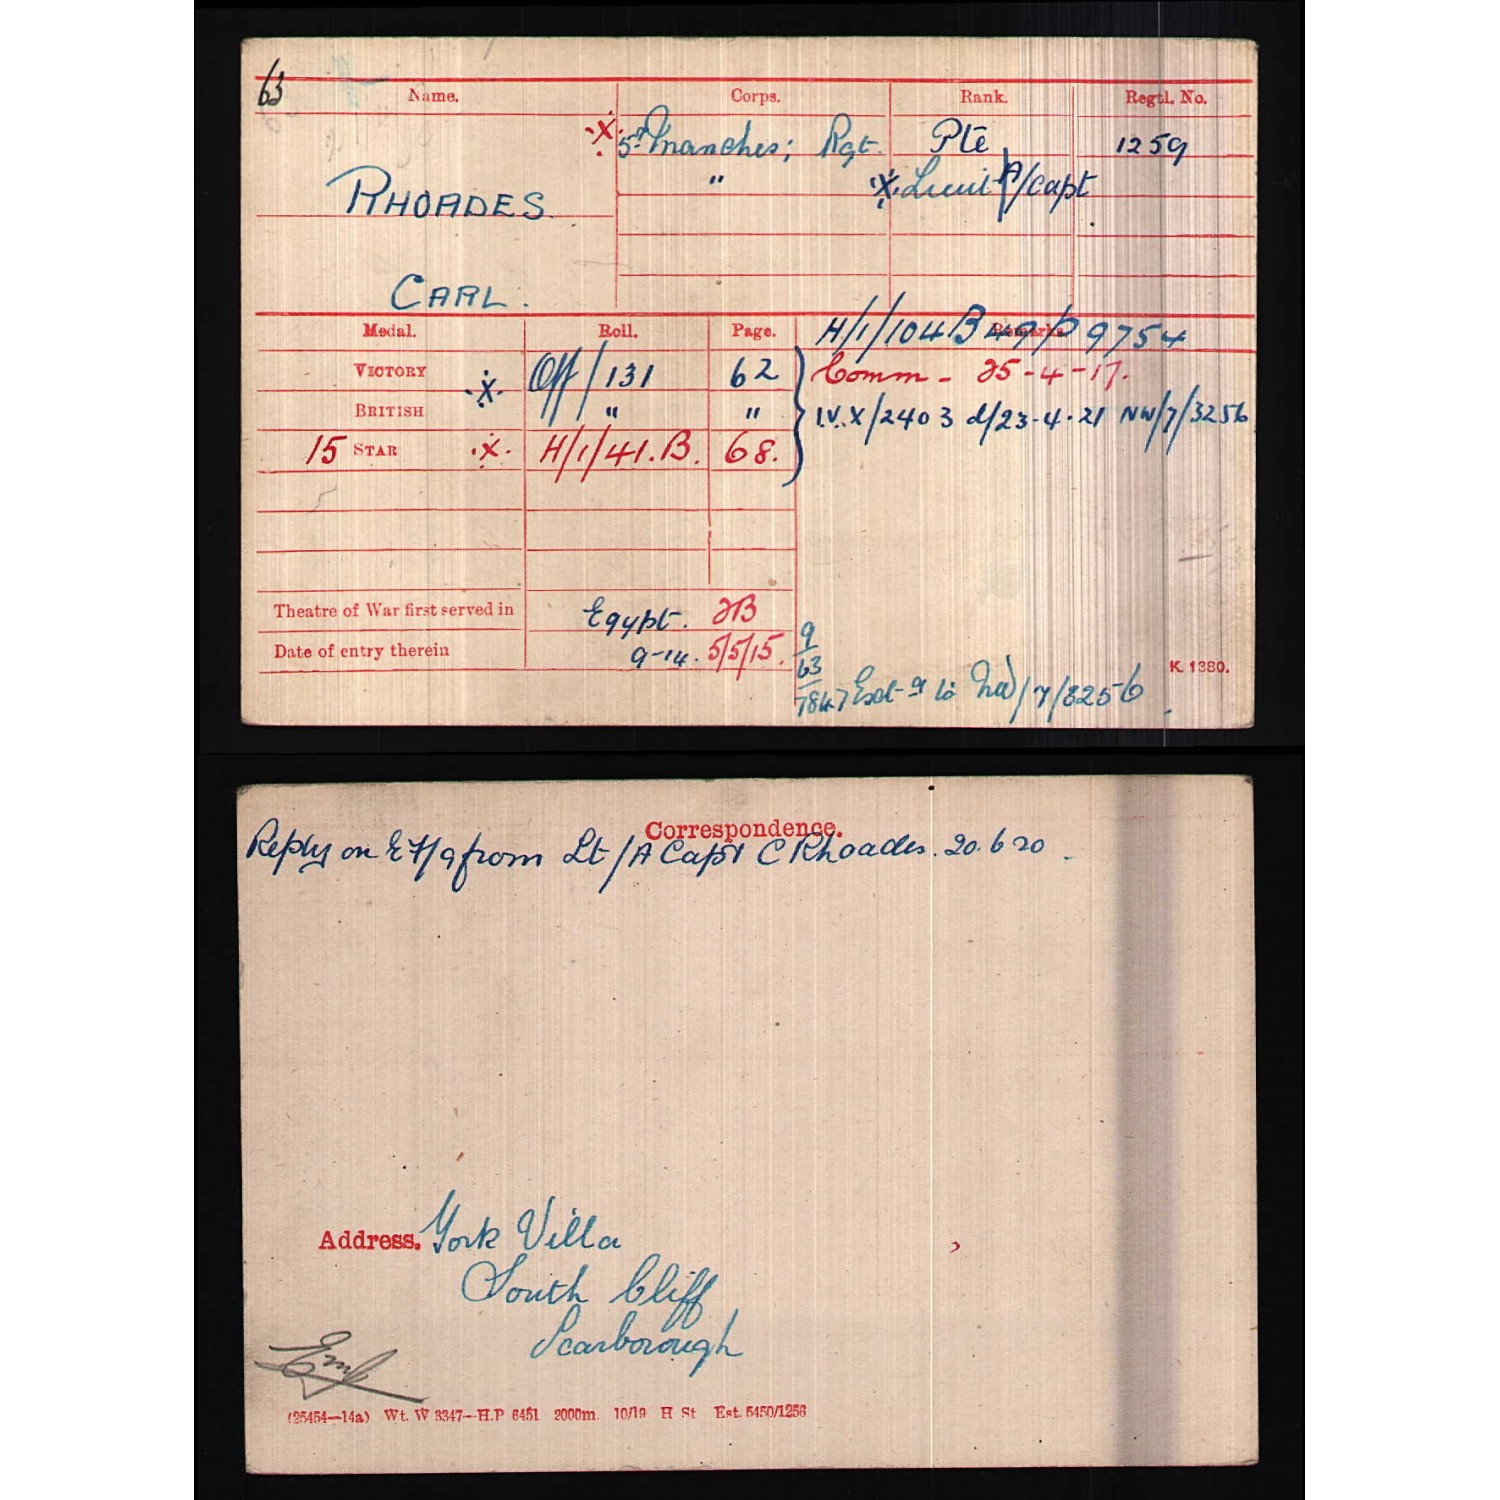 63
Name. Corps. Rank. Regtl. No.
X 5th Manches; Rgt. Pte 1259
" X Lieut A/Capt
RHOADES
CARL.
Medal. Roll. Page. Remarks
H/1/104B49 P 9754
VICTORY X Off/131 62 Comm - 25-4-17.
BRITISH " " I.V.X/2403 d/23-4-21 NW/7/3256
15 STAR X H/1/41.B. 68.
Theatre of War first served in Egypt. 2B
Date of entry therein 9-14. 5/5/15.
9
63
7847 to NW/7/3256
K. 1380.
Correspondence.
Reply on EF/9 from Lt/A Capt C Rhoades. 20.6 20.
Address. York Villa
South Cliff
Scarborough
(25454—14a) Wt. W 3347—H.P 6451 2000m. 10/19 H St Est. 5450/1256